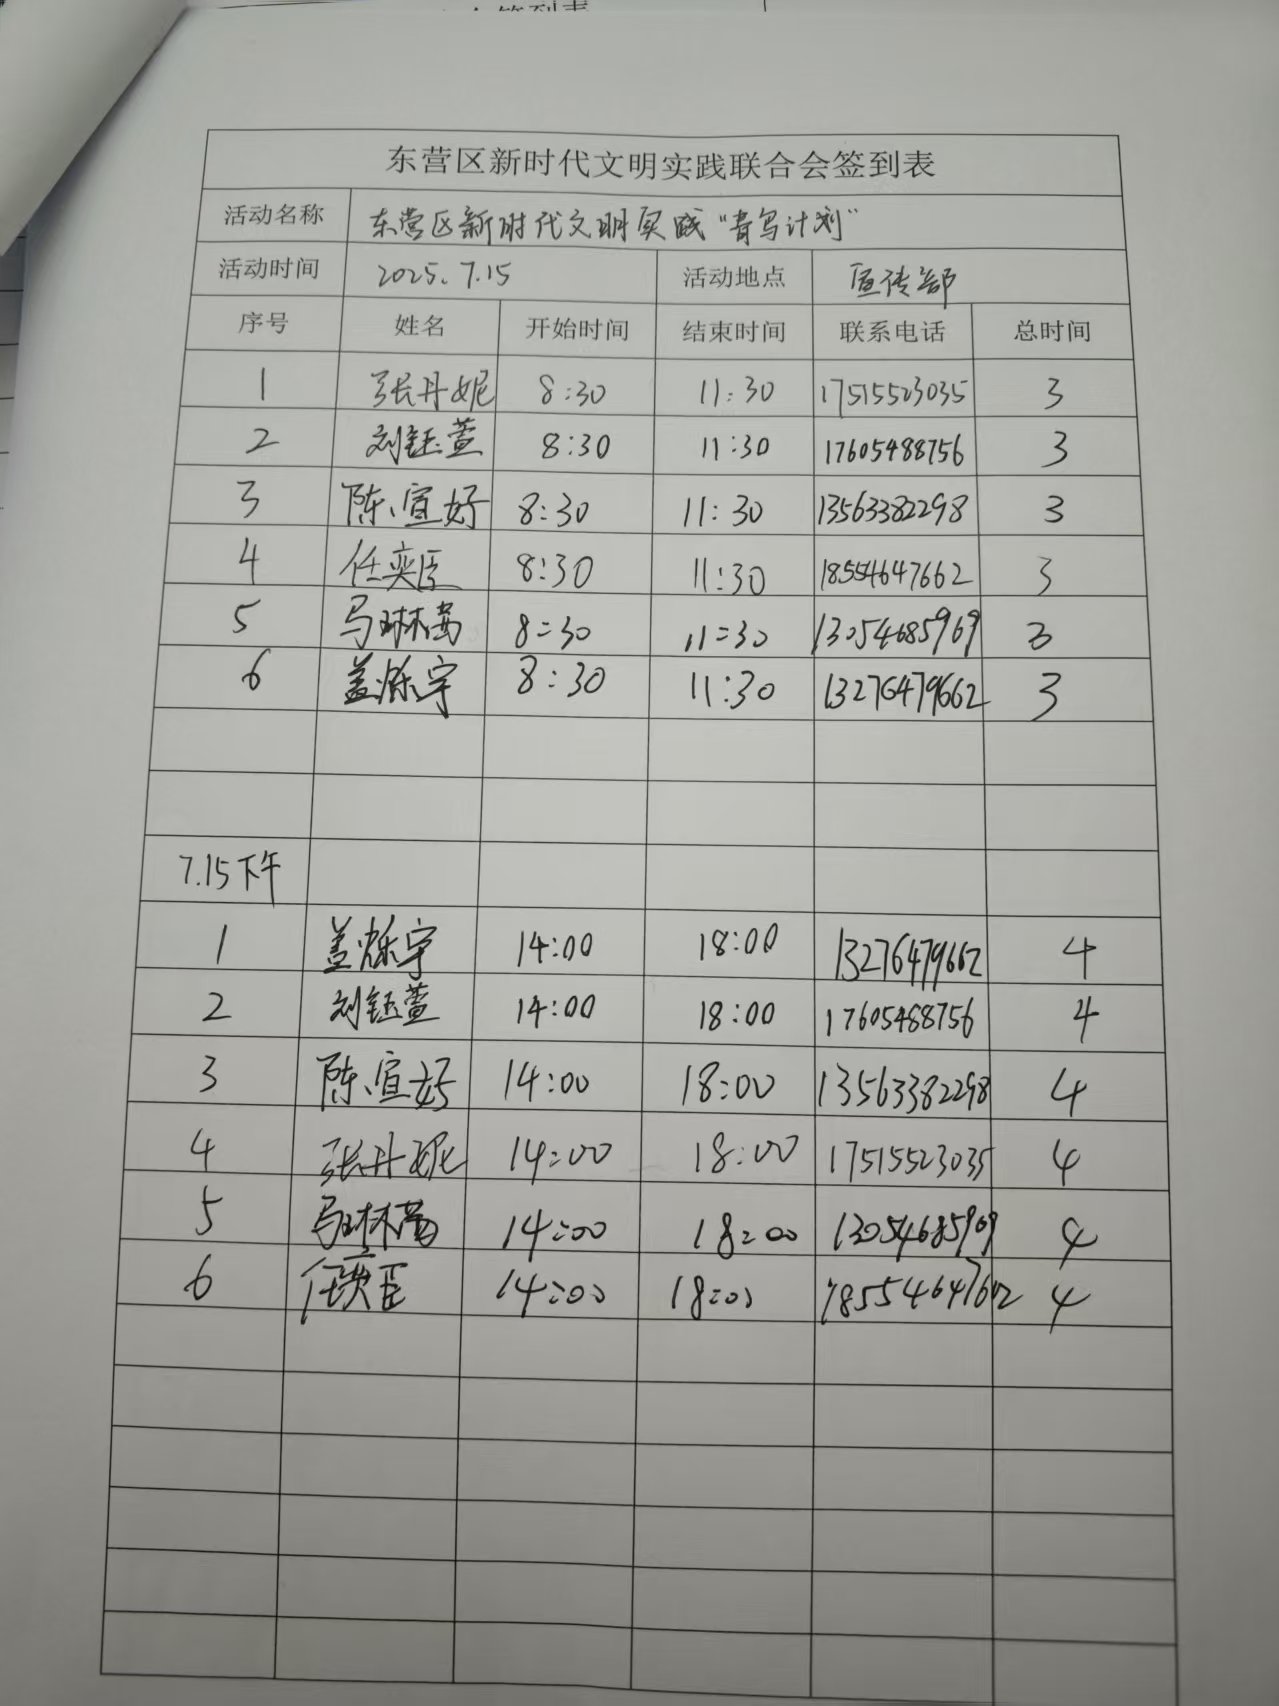 东营区新时代文明实践联合会签到表
活动名称 东营区新时代文明实践“青鸟计划”
活动时间 2025.7.15 活动地点 宣传部
序号 姓名 开始时间 结束时间 联系电话 总时间
1 张丹妮 8:30 11:30 17515523035 3
2 刘钰萱 8:30 11:30 17605488756 3
3 陈宣好 8:30 11:30 13563382298 3
4 任奕臣 8:30 11:30 18554647662 3
5 马琳茜 8:30 11:30 13054685969 3
6 盖烁宇 8:30 11:30 13276479662 3
7.15下午
1 盖烁宇 14:00 18:00 13276479662 4
2 刘钰萱 14:00 18:00 17605488756 4
3 陈宣好 14:00 18:00 13563382298 4
4 张丹妮 14:00 18:00 17515523035 4
5 马琳茜 14:00 18:00 13054685969 4
6 任奕臣 14:00 18:00 18554647662 4